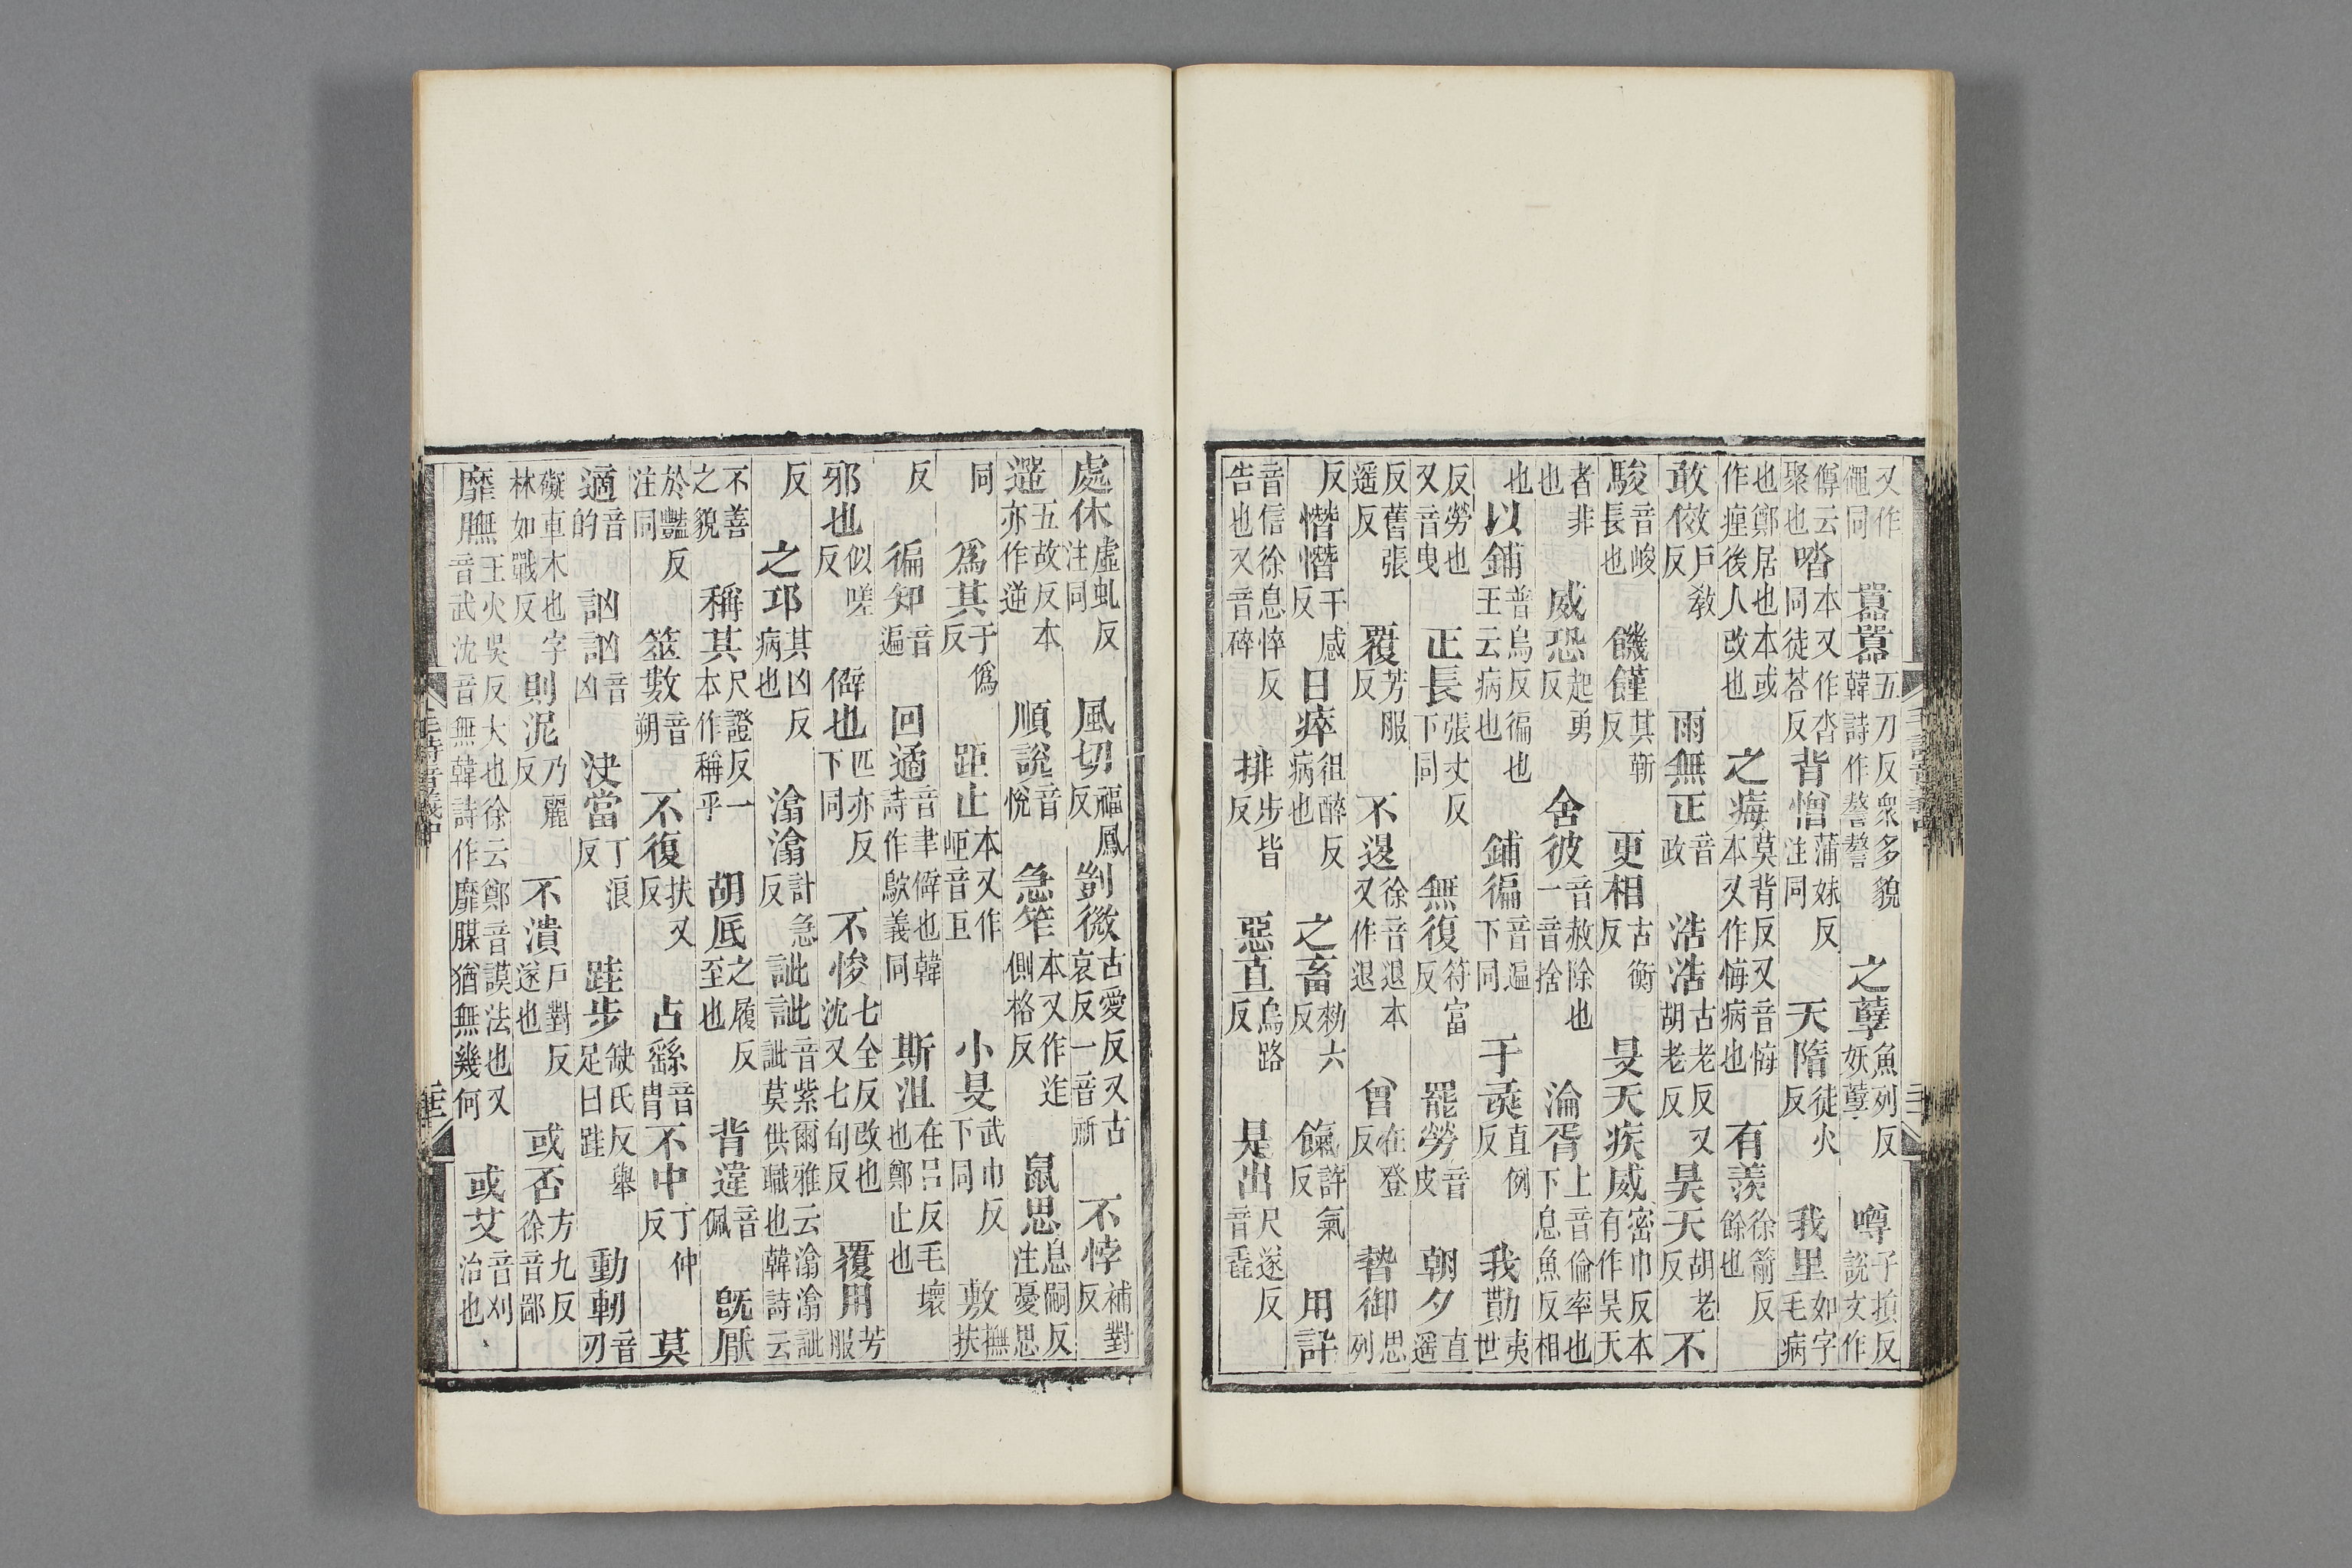 又作僶同 囂囂五刀反衆多貌韓詩作謷謷 之孽魚列反妖孽 噂子損反説文作
僔云聚也 㗫本又作沓同徒荅反 背憎蒲妹反注同 天隋徒火反 我里如字毛病
也鄭居也本或作㾖後人改也 之痗莫背反又音悔本又作悔病也 有羨徐箭反餘也
敢傚戶敎反 雨無正音政 浩浩古老反又胡老反 昊天胡老反 不
駿音峻長也 饑饉其靳反 更相古衡反 旻天疾威密巾反本有作昊天
者非也 威恐起勇反 舍彼音赦除也一音捨 淪胥上音倫率也下息魚反相
也 以鋪普烏反徧也王云病也 鋪徧音遍下同 于彘直例反 我勩夷世
反勞也又音曳 正長張丈反下同 無復符富反 罷勞音皮 朝夕直遥
反舊張遥反 覆芳服反 不退徐音退本又作退 曾在登反 暬御思列
反 憯憯千感反 日瘁徂醉反病也 之畜勑六反 餼許氣反 用訐
音信徐息悴反告也又音碎 排步皆反 惡直烏路反 是出尺遂反音毳
毛詩音義中
處休虛虬反注同 風切福鳳反 剴微古愛反又古哀反一音祈 不悖補對反
遻五故反本亦作逆 順説音悅 急笮本又作迮側格反 鼠思息嗣反注憂思
同 爲其于僞反 距止本又作岠音巨 小旻武巾反下同 敷撫扶
反 徧知音遍 回遹音聿僻也韓詩作歍義同 斯沮在呂反毛壞也鄭止也
邪也似嗟反 僻也匹亦反下同 不悛七全反改也沈又七旬反 覆用芳服
反 之邛其凶反病也 潝潝許急反 訿訿音紫爾雅云潝潝訿訿莫供職也韓詩云
不善之貌 稱其尺證反一本作稱乎 胡厎之履反至也 背違音佩 旣厭
於豔反注同 筮數音朔 不復扶又反 占繇音冑 不中丁仲反 莫
適音的 訩訩音凶 決當丁浪反 跬步缺氏反舉足曰跬 動軔音刃
礙車木也字林如戰反 則泥乃麗反 不潰戶對反遂也 或否方九反徐音鄙
靡膴王火吳反大也徐云鄭音謨法也又音武沈音無韓詩作靡腜猶無幾何 或艾音刈治也
毛詩音義中